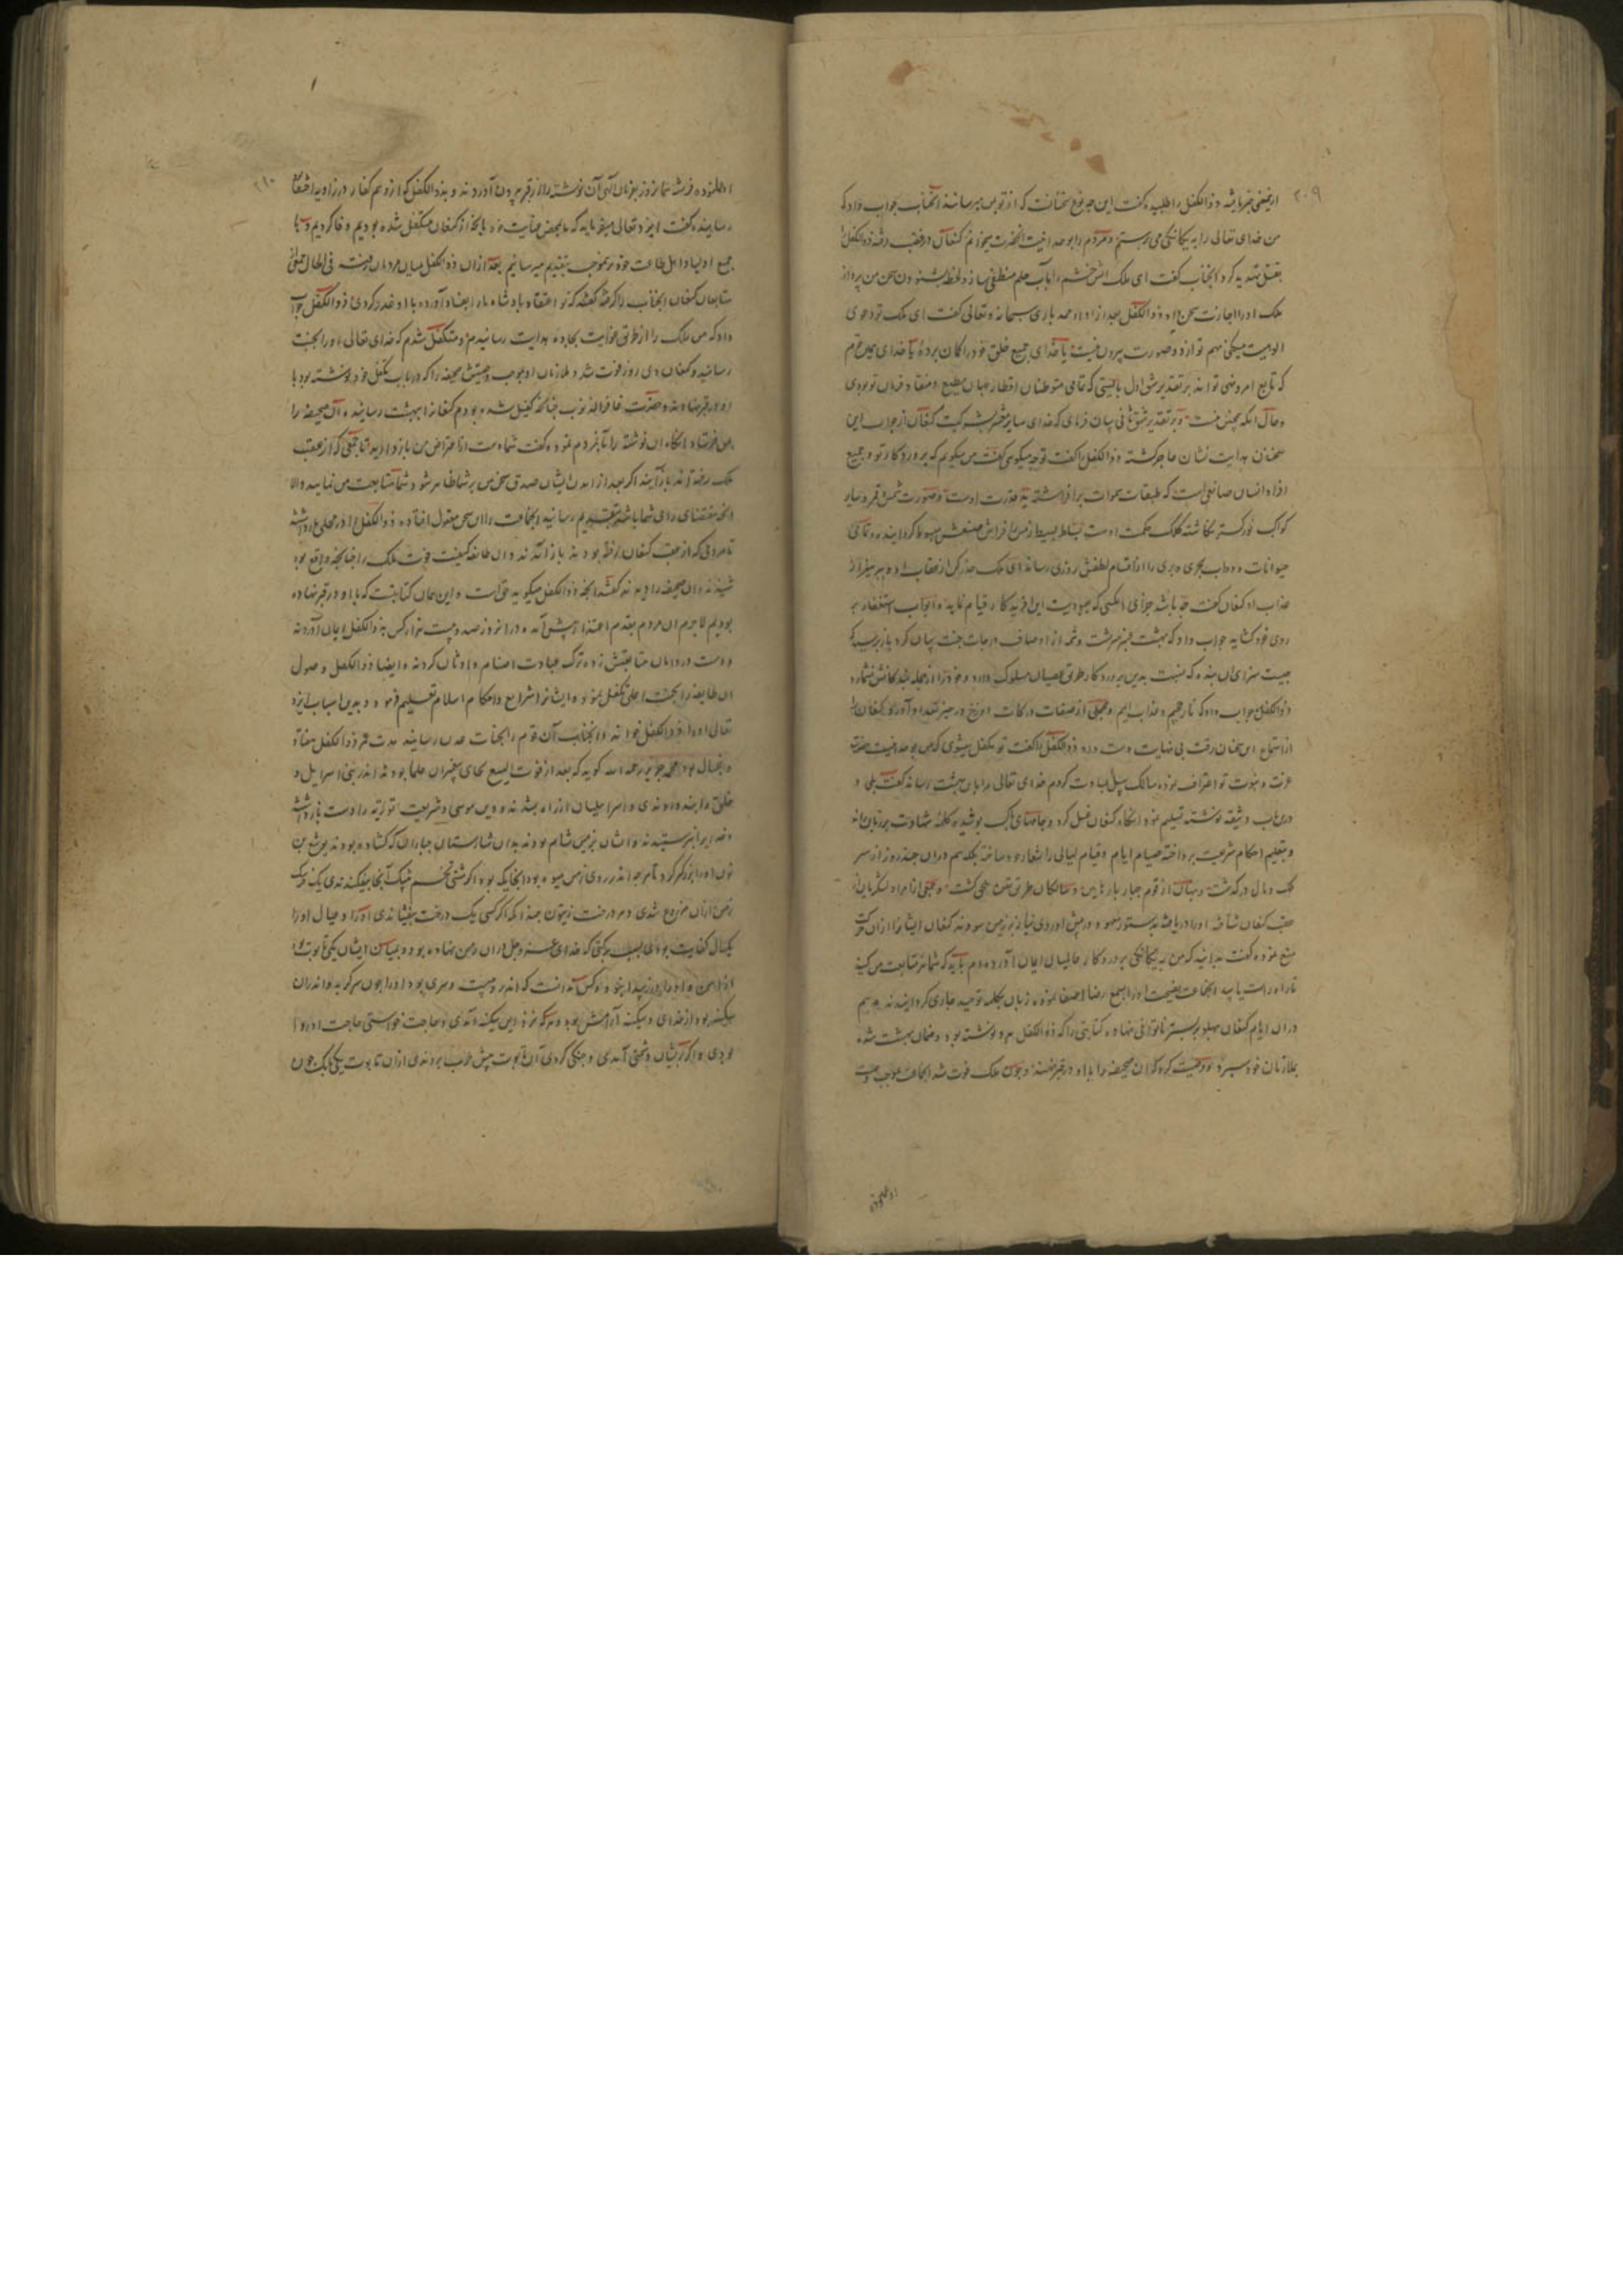 ۲۰۹
ازینمعنی خبر یافته ذوالکفل را طلبیده گفت این چه نوع سخنانست که از تو بمن میرسانند آنجناب جواب داد که
من خدای تعالی را به یگانگی می پرستم و مردم را بوحدانیت آنحضرت میخوانم کنعان در غضب رفته ذوالکفل را
بقتل تهدید کرد آنجناب گفت ای ملک آتش خشم را بآب حلم منطفی ساز و لحظه بشنودن سخن من پرداز
ملک او را اجازت سخن داد ذوالکفل بعد از ادای حمد باری سبحانه و تعالی گفت ای ملک تو دعوی
الوهیت میکنی مهم تو از دو صورت بیرون نیست یا خدای جمیع خلق خود را گمان برده یا خدای همین قوم
که تابع امر و نهی تو اند بر تقدیر شق اول بایستی که تمامی متوطنان اقطار جهان مطیع و منقاد فرمان تو بودی
و حال آنکه چنین نیست و بر تقدیر شق ثانی بیان فرمای که خدای سایر بشر کیست کنعان از جواب این
سخنان هدایت نشان عاجز گشته ذوالکفل را گفت تو چه میگوی گفت من میگویم که پروردگار تو و جمیع
افراد انسان صانعی است که طبقات سموات برافراشته ید قدرت اوست و صورت شمس و قمر و سایر
کواکب نور گستر نگاشته کلک حکمت اوست بساط بسیط زمین را فراش صنعش مهیا گردانیده و تمامی
حیوانات و دواب بحری و بری را از اقسام لطفش روزی رساند ای ملک حذر کن از عقاب او و بپرهیز از
عذاب او کنعان گفت چه باشد جزای آنکسی که بعبودیت این آفریدگار قیام نماید و ابواب استغفار بر
روی خود گشاید جواب داد که بهشت عنبر سرشت و شمه از اوصاف درجات جنت بیان کرد باز پرسید که
چیست سزای آن بنده که نسبت بدین پروردگار طریق عصیان مسلوک دارد و خود را از جمله بندگانش نشمارد
ذوالکفل جواب داد که نار جحیم و عذاب الیم و مجملی از صفات درکات دوزخ در حیز تعداد آورد کنعان را
از استماع این سخنان رقت بی نهایت دست داده ذوالکفل را گفت تو متکفل میشوی که من بوحدانیت حضرت
عزت و نبوت تو اعتراف نموده سالک سبیل عبادت گردم خدای تعالی مرا بآن بهشت رساند گفت بلی و
درین باب وثیقه نوشته تسلیم نمود آنگاه کنعان غسل کرد و جامهای پاک پوشیده کلمه شهادت بر زبان راند
و بتعلیم احکام شریعت پرداخته صیام ایام و قیام لیالی را شعار خود ساخت بلکه هم در آن چند روز از سر
ملک و مال درگذشت و پنهان از قوم جبار بار نارین و سالکان طریق متن یحی گشت و جمعی از امرا و لشکریان از
عقب کنعان شتافته او را دریافتند بدستور معهود در پیش او روی نیاز بر زمین سودند کنعان ایشان را از آن حرکت
منع نموده گفت بدانید که من به یگانگی پروردگار عالمیان ایمان آورده‌ام باید که شما نیز متابعت من کنید
تا راه راست یابید آنجماعت نصیحت او را بسمع رضا اصغا نموده زبان بکلمه توحید جاری گردانیدند و هم
در آن ایام کنعان پهلو بر بستر ناتوانی نهاده کتابتی را که ذوالکفل بدو نوشته بود و ضمان بهشت شده
بملازمان خود سپرد و وصیت کرد که آن صحیفه را با او در قبر نهند و چون ملک فوت شد آنجماعت بموجب وصیت
او عمل نموده
۲۱۰
او عمل نموده فرشته نماز روز بفرمان الهی آن نوشته را از قبر بیرون آوردند و بذوالکفل که از وهم کفار در زاویه اختفا
رسانیده گفت ایزد تعالی میفرماید که ما بمحض عنایت خود بآنچه از کنعان متکفل شده بودیم وفا کردیم و ما
جمیع اولیا و اهل طاعت خود را بموجب بتقدیم میرسانیم بعد از آن ذوالکفل میان مردمان رفت فی الحال جمعی از
متابعان کنعان آنجناب را گرفته گفتند که تو اعتقاد پادشاه ما را بفساد آورده با او غدر کردی ذوالکفل جواب
داد که من ملک را از طریق غوایت بجاده هدایت رسانیدم و متکفل شدم که خدای تعالی او را بجنت
رساند و کنعان دی روز فوت شد و ملازمان او بموجب وصیتش صحیفه را که در باب تکفل خود نوشته بودم با
او در قبر نهادند و حضرت غافر الذنوب چنانکه کفیل شده بودم کنعان را ببهشت رسانید و آن صحیفه را
بمن فرستاد آنگاه آن نوشته را بآنمردم نمود و گفت شما دست از اعتراض من باز دارید تا جمعی که از عقب
ملک رفته اند باز آیند اگر بعد از آمدن ایشان صدق سخن من بر شما ظاهر شود شما متابعت من نمایید و الا
آنچه مقتضای رای شما باشد بتقدیم رسانید و آنجماعت را این سخن معقول افتاده ذوالکفل را در محلی باز داشتند
تا مردمی که از عقب کنعان رفته بودند باز آمدند و آن طایفه کیفیت فوت ملک را چنانچه واقع بود
شنیدند و آن صحیفه را دیدند گفتند آنچه ذوالکفل میگوید حق است و این همان کتابتست که ما با او در قبر نهاده
بودیم لاجرم آن مردم بقدم اعتذار پیش آمدند و در آن روز صد و بیست هزار کس بذوالکفل ایمان آوردند
و دست در دامان متابعتش زده ترک عبادت اصنام و اوثان کردند و ایضا ذوالکفل وصول
آن طایفه را بجنت اعلی تکفل نمود و ایشان را شرایع و احکام اسلام تعلیم فرمود و بدین اسباب ایزد
تعالی او را ذوالکفل خواند و آنجناب آن قوم را بجنات عدن رسانید مدت عمر ذوالکفل هفتاد
و پنجسال بود محمد جریر رحمه الله گوید که بعد از فوت الیسع بجای پیغمبران علما بودند اندر بنی اسراییل و
خلق را پند دادندی و اسرائیلیان از راه بشدند و دین موسی و شریعت توریة را دست باز داشتند
و خدایرا نپرستیدند و ایشان بزمین شام بودند بدان شارستان جباران که گشاده بودند یوشع بن
نون او را بزرگتر کرد تا هر چه اندر روی زمین میوه بود آنجا یک بود اگر مشتی تخم سپک آنجا بیفکندندی یک خربک
زمین از آن مزروع شدی و مر درخت زیتون چندانکه اگر کسی یک درخت بنشاندی او را و عیال او را
یکسال کفایت بودی بسبب برکتی که خدای عز و جل در آن زمین نهاده بود و بمیان ایشان یکی تابوت بود
میگفتند بود از خدای و سکینه آرامش بود و هر که نزد این سکینه آمدی و حاجت خواستی حاجت او روا
بودی و اگر بریشان دشمنی آمدی و جنگی کردی آن تابوت پیش حرب بردندی از آن تابوت یکی بانک چون